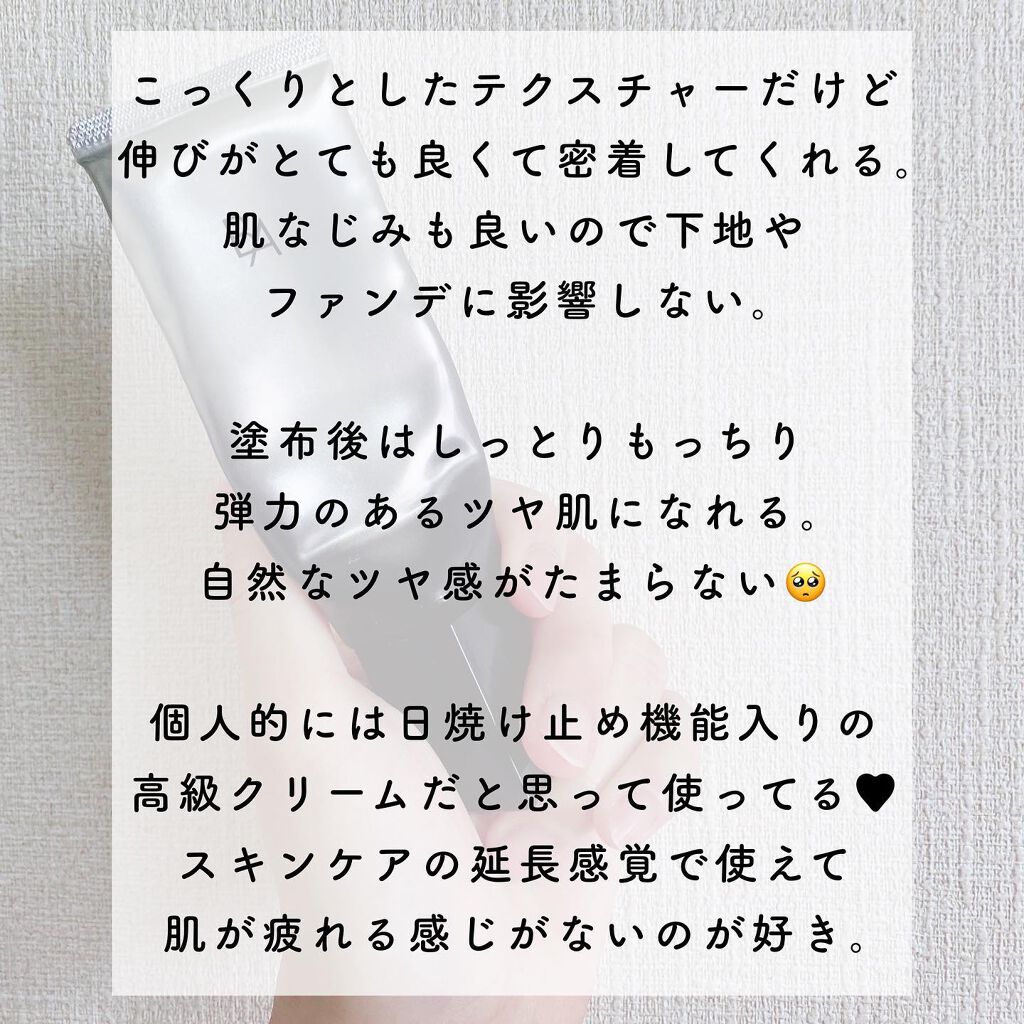 こっくりとしたテクスチャーだけど
伸びがとても良くて密着してくれる。
肌なじみも良いので下地や
ファンデに影響しない。
塗布後はしっとりもっちり
弾力のあるツヤ肌になれる。
自然なツヤ感がたまらない🥺
個人的には日焼け止め機能入りの
高級クリームだと思って使ってる♥
スキンケアの延長感覚で使えて
肌が疲れる感じがないのが好き。